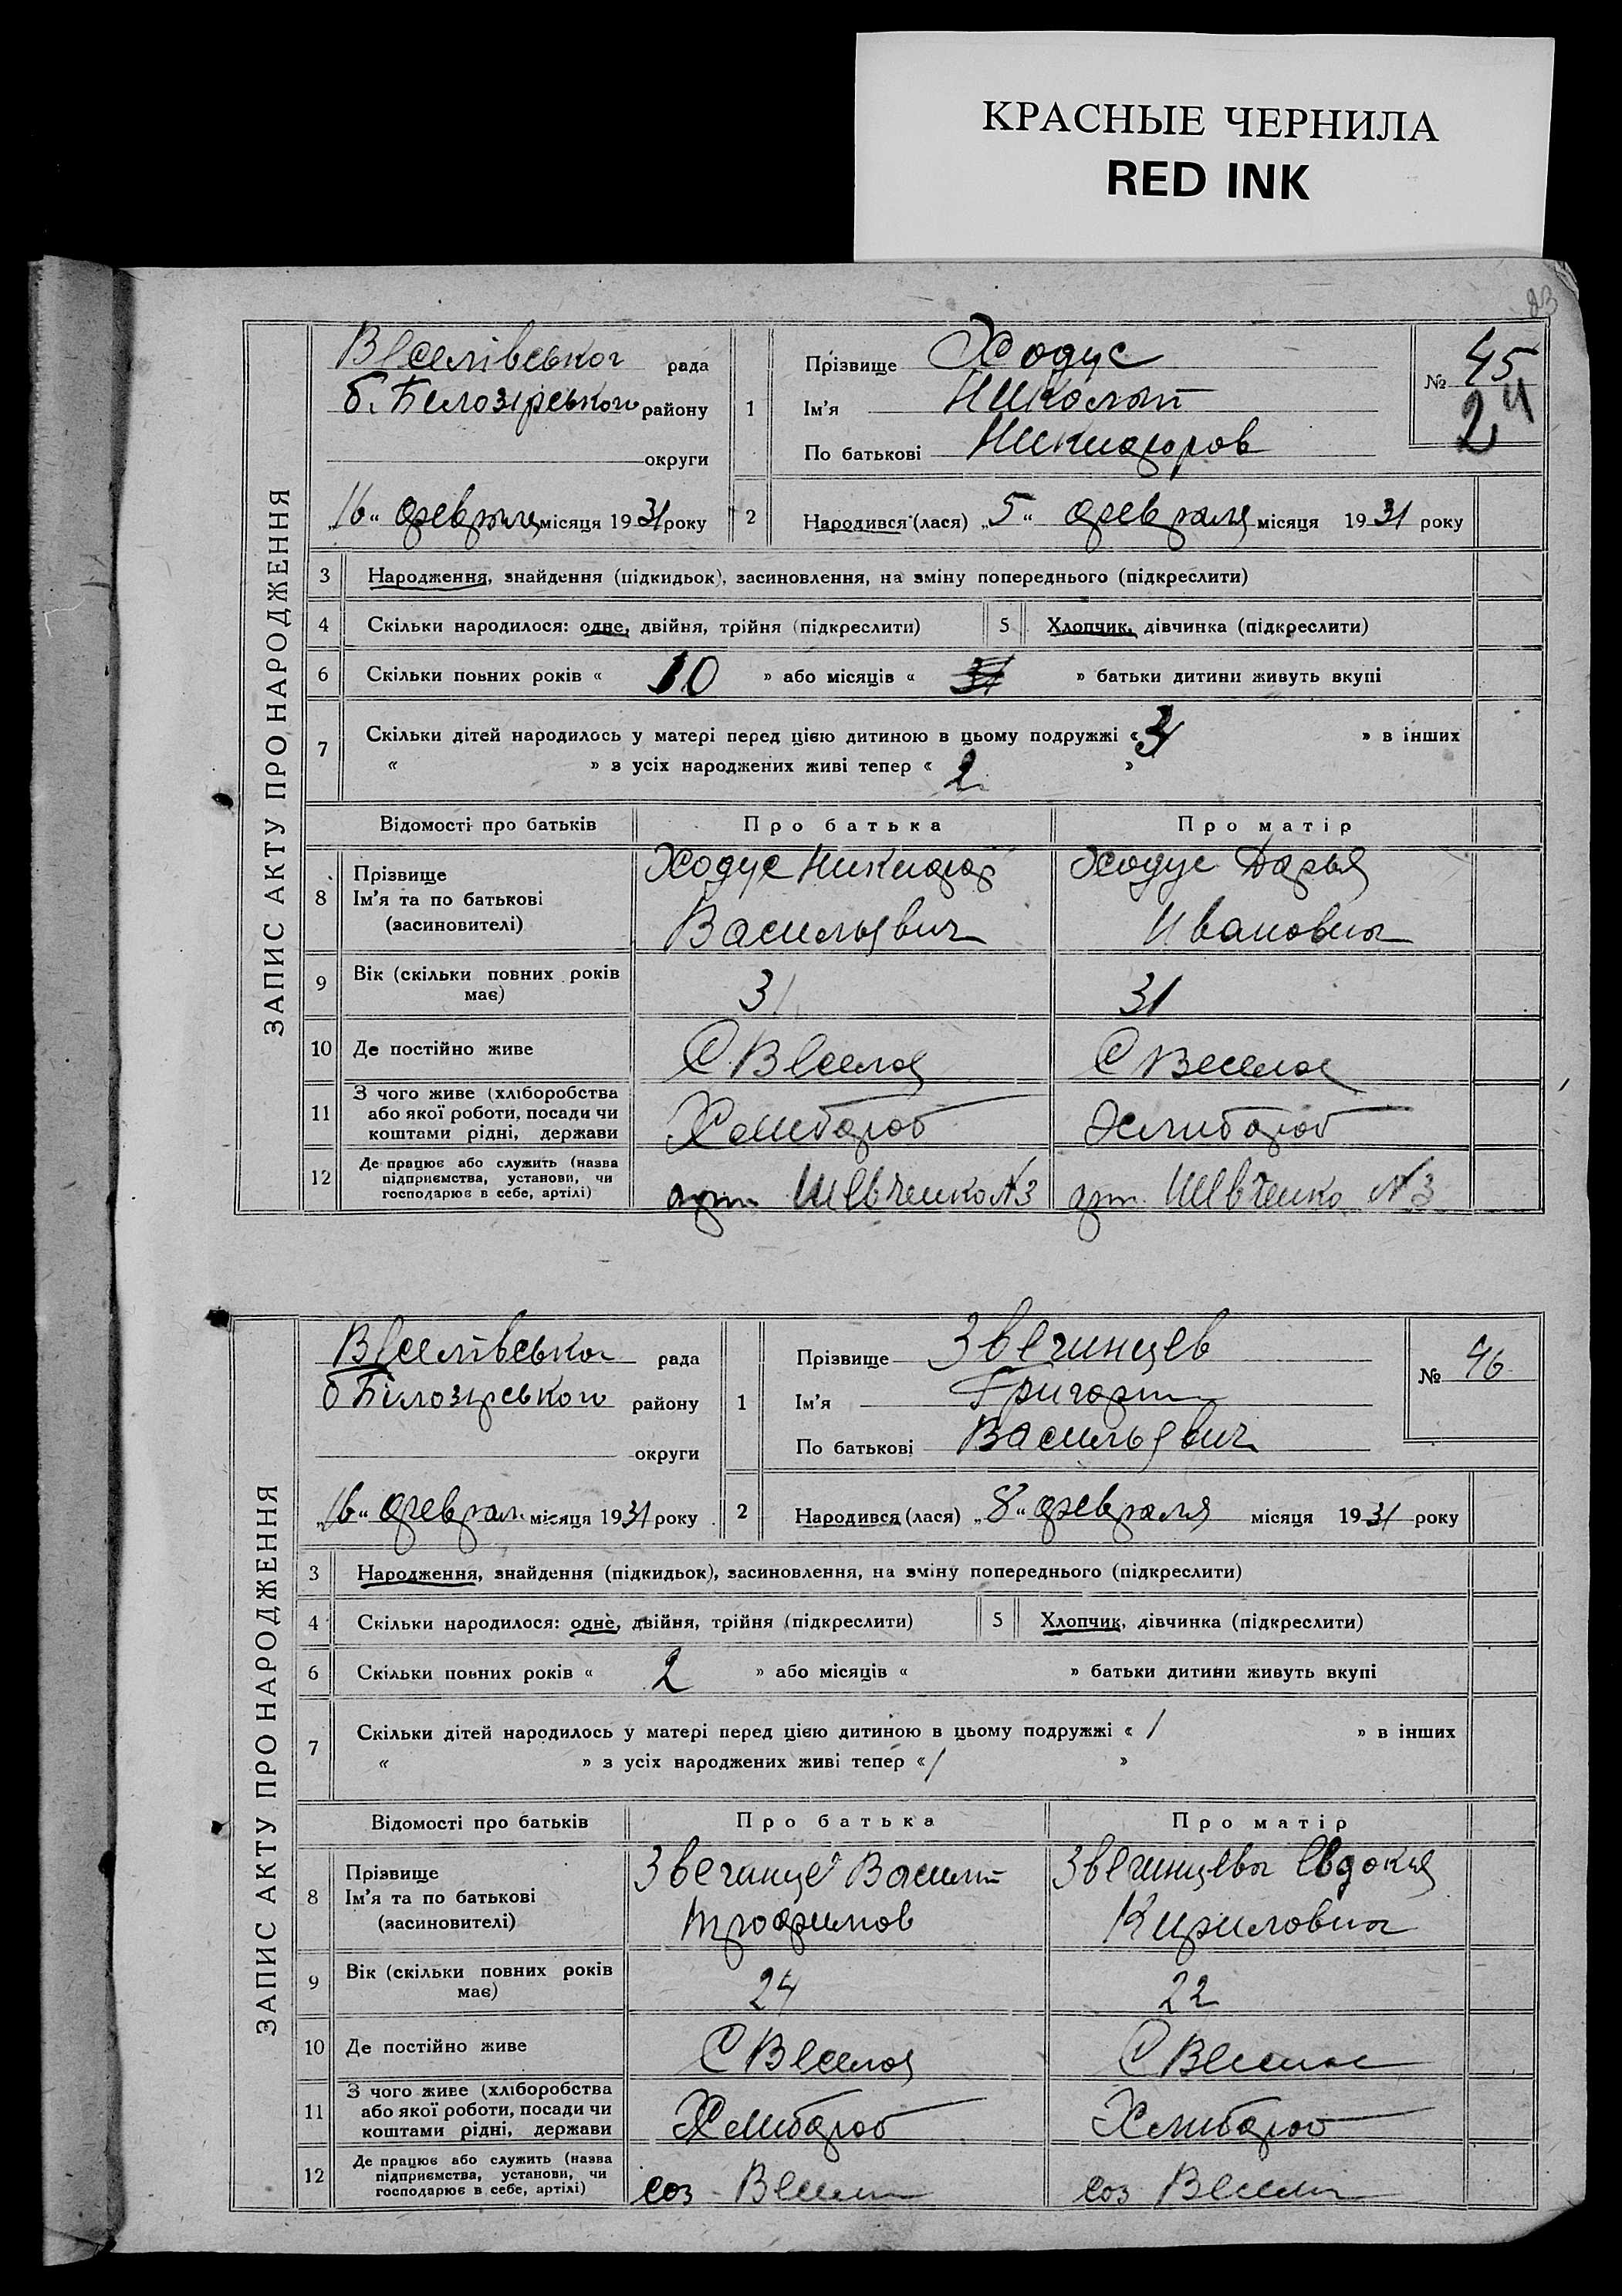 КРАСНЫЕ ЧЕРНИЛА
RED INK
83
ЗАПИС АКТУ ПРО НАРОДЖЕННЯ
Веселівська рада
б. Білозірського району
округи
„16“ февраля місяця 1931 року
1
Прізвище Ходус
Ім’я Николай
По батькові Никифоров
№ 45
24
2 Народився (лася) „5“ февраля місяця 1931 року
3 Народження, знайдення (підкидьок), засиновлення, на зміну попереднього (підкреслити)
4 Скільки народилося: одне, двійня, трійня (підкреслити) 5 Хлопчик, дівчинка (підкреслити)
6 Скільки повних років « 10 » або місяців « » батьки дитини живуть вкупі
7 Скільки дітей народилось у матері перед цією дитиною в цьому подружжі « 3 » в інших
« » з усіх народжених живі тепер « 2 »
Відомості про батьків Про батька Про матір
8 Прізвище Ходус Никифор Ходус Дарья
Ім’я та по батькові
(засиновителі) Васильевич Ивановна
9 Вік (скільки повних років має) 31 31
10 Де постійно живе С Веселое С Веселое
11 З чого живе (хліборобства
або якої роботи, посади чи
коштами рідні, держави Хлибороб Хлибороб
12 Де працює або служить (назва
підприємства, установи, чи
господарює в себе, артілі) арт. Шевченко № 3 арт. Шевченко № 3
ЗАПИС АКТУ ПРО НАРОДЖЕННЯ
Веселівська рада
б Білозірського району
округи
„16“ феврал. місяця 1931 року
1
Прізвище Звегинцев
Ім’я Григорий
По батькові Васильевич
№ 46
2 Народився (лася) „8“ февраля місяця 1931 року
3 Народження, знайдення (підкидьок), засиновлення, на зміну попереднього (підкреслити)
4 Скільки народилося: одне, двійня, трійня (підкреслити) 5 Хлопчик, дівчинка (підкреслити)
6 Скільки повних років « 2 » або місяців « » батьки дитини живуть вкупі
7 Скільки дітей народилось у матері перед цією дитиною в цьому подружжі « 1 » в інших
« » з усіх народжених живі тепер « 1 »
Відомості про батьків Про батька Про матір
8 Прізвище Звегинцев Василий Звегинцева Евдокия
Ім’я та по батькові
(засиновителі) Трофимов Кириловна
9 Вік (скільки повних років має) 24 22
10 Де постійно живе С Веселое С Веселое
11 З чого живе (хліборобства
або якої роботи, посади чи
коштами рідні, держави Хлибороб Хлибороб
12 Де працює або служить (назва
підприємства, установи, чи
господарює в себе, артілі) соз соз